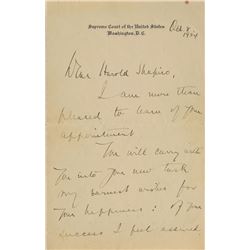 Supreme Court of the United States
Washington, D.C.
Oct. 8
1934
Dear Harold Shapiro,
I am more than
pleased to learn of your
appointment
You will carry with
you into your new task
my earnest wishes for
your happiness: of your
success I feel assured